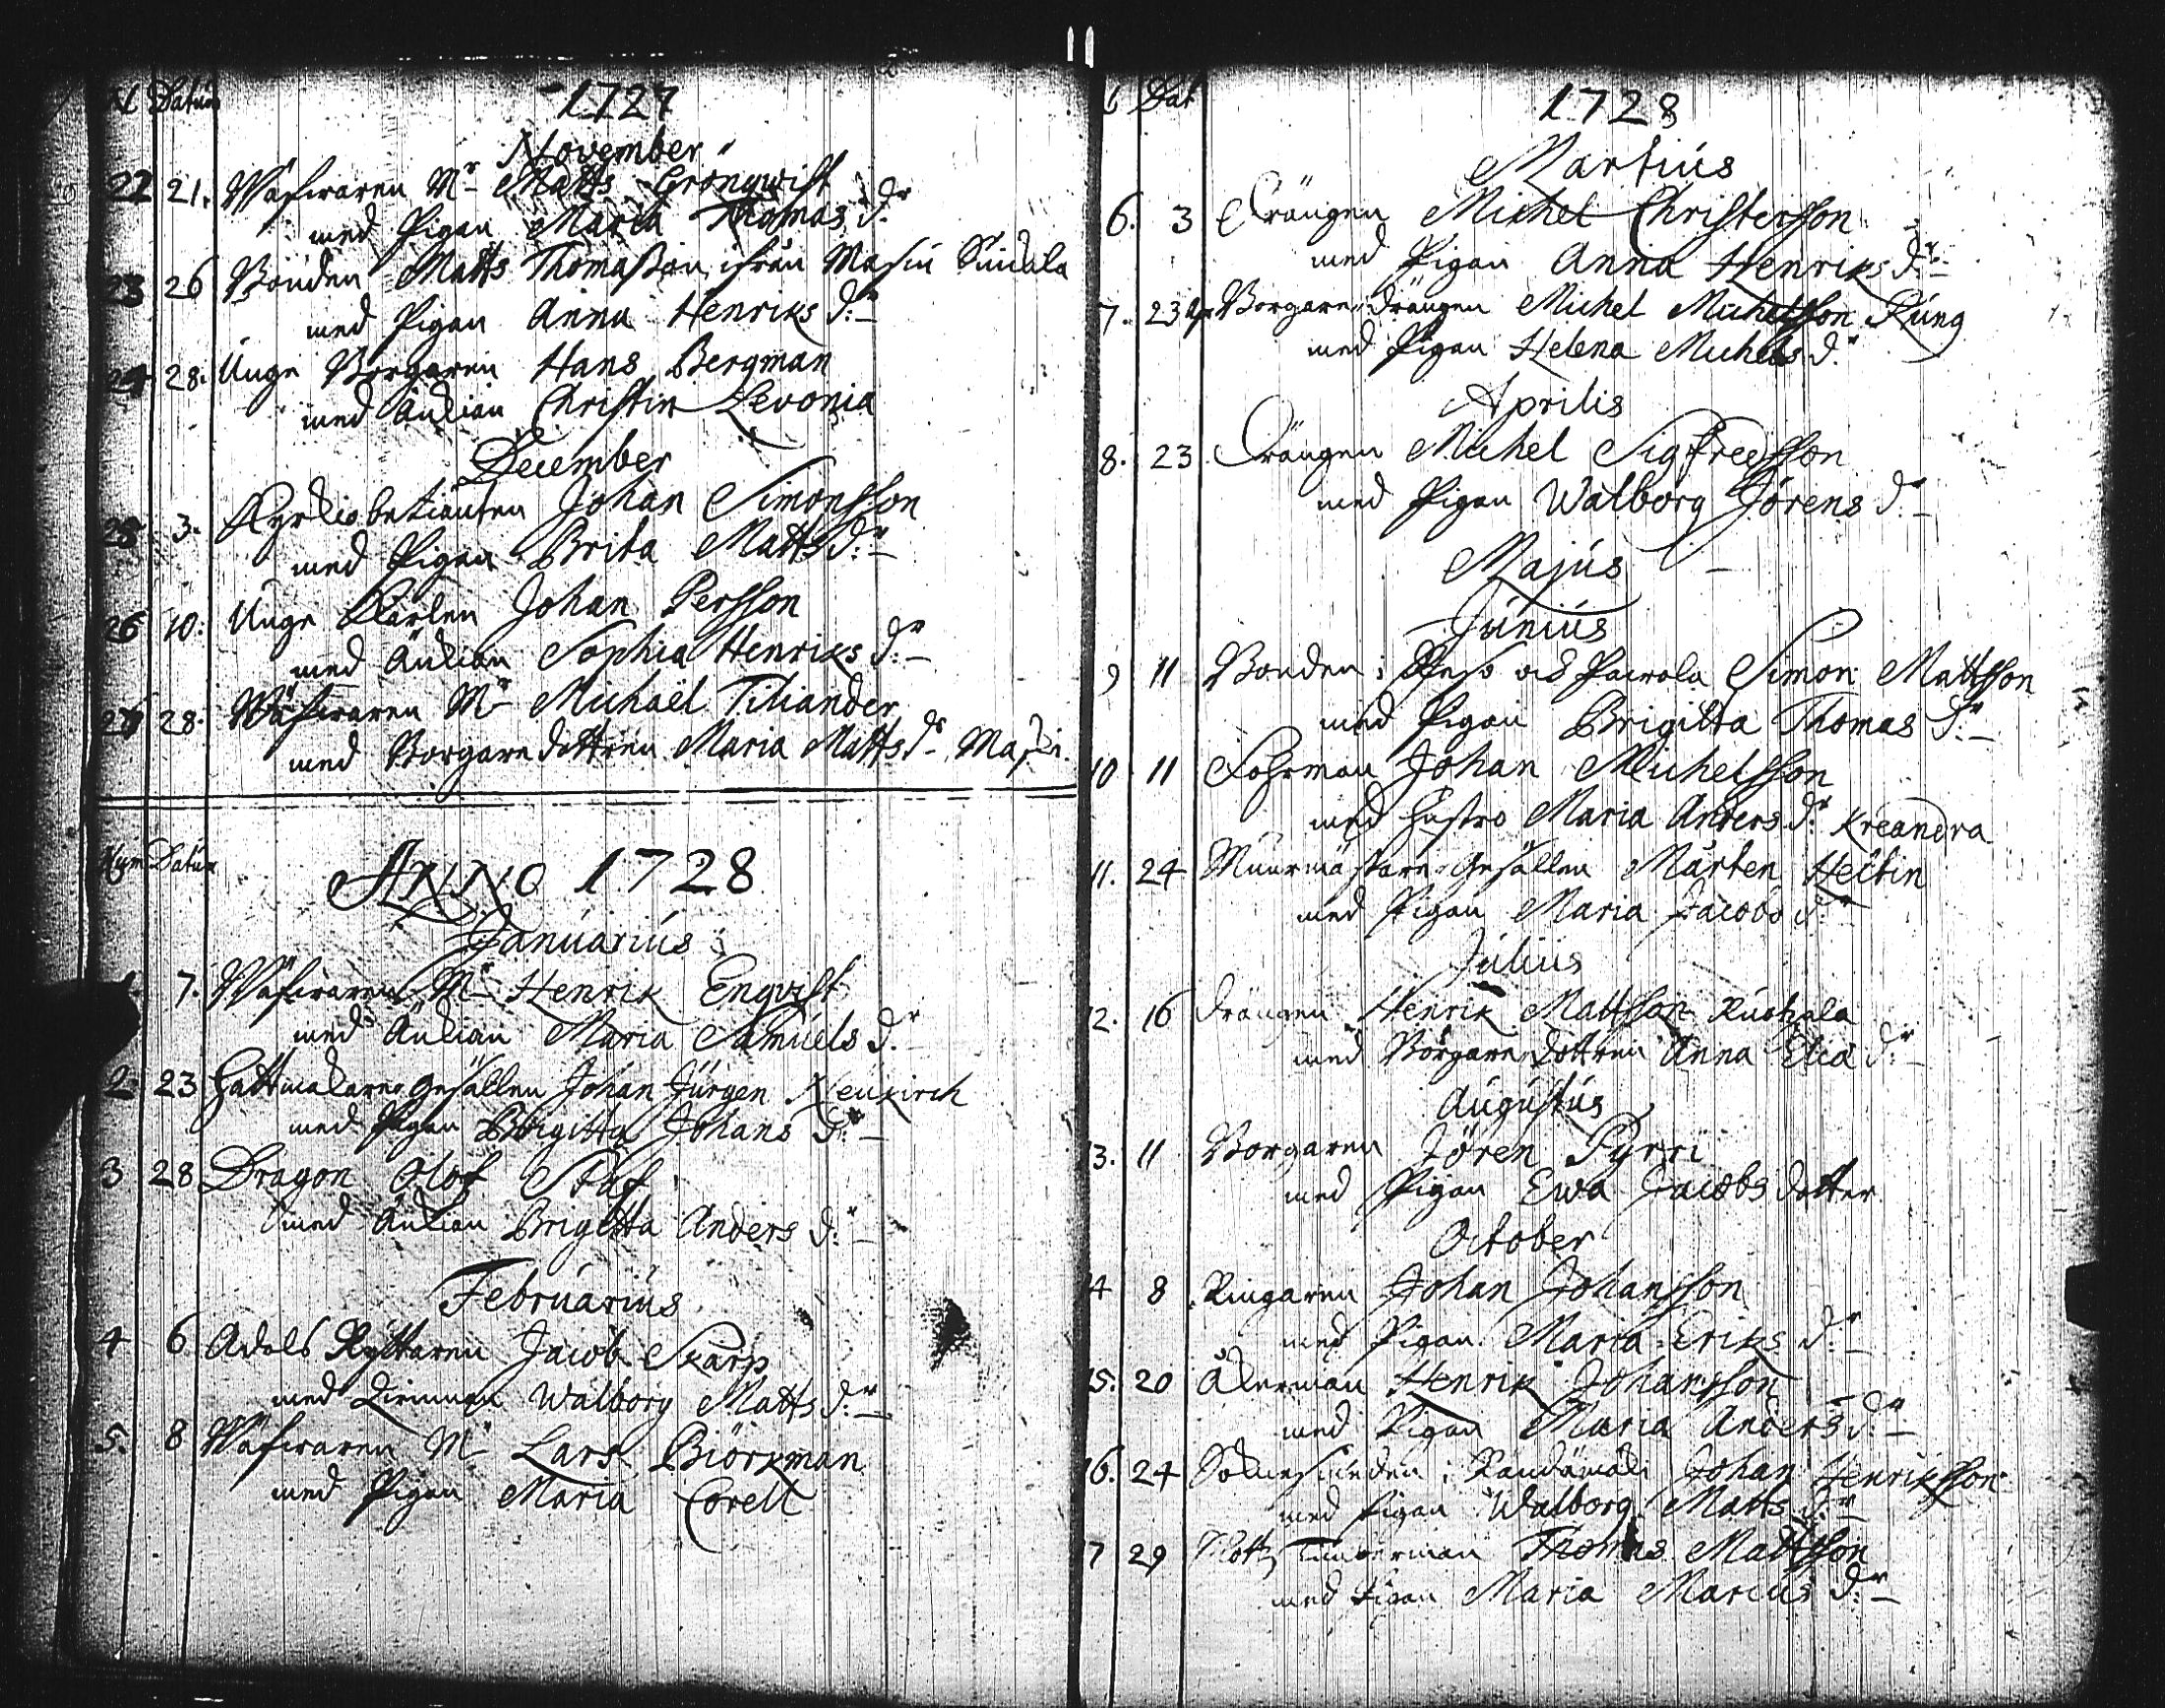 N Datum
1727
November
22 21. Wäfwaren Mr Matts Grönqwist
med Pigan Maria Thomas dr
23 26 Bonden Matts Thomasson ifrån
med Pigan Anna Henriks d:r
24 28. Unge Borgaren Hans Bergman
med Änkian Christin Levonia
December
25 3. Kyrkiobetiänten Johan Simonsson
med Pigan Brita Matts d:r
26 10. Unge Karlen Johan Persson
med Änkian Sophia Henriks d:r
27 28. Wäfwaren Mr Michaël Tiliander
med Borgaredottren Maria Matts dr
Num Datum
ANNO 1728
Januarius
7. Wäfwaren Mr Henrik Engvist
med Änkian Maria Samuels dr
2 23 Hattmakare gesällen Johan Jürgen Neukirch
med Pigan Brigitta Johans d:r
3 28 Dragon Olof
med Änkian Brigitta Anders d:r
Februarius
4 6 Adels Ryttaren Jacob Skarp
med Qwinnan Walborg Matts d:r
5. 8 Wäfwaren Mr Lars Biörkman
med Pigan Maria Corell
Dat
1728
Martius
6. 3 Drängen Michel Christersson
med Pigan Anna Henriks d:r
7. 23 Borgare drängen Michel Michelsson Kung
med Pigan Helena Michels dr
Aprilis
8. 23 Drängen Michel Sigfredsson
med Pigan Walborg Jörens dr
Majus
Junius
9 11 Bonden i Simon Mattsson
med Pigan Brigitta Thomas d:r
10 11 Fohrman Johan Michelsson
med Hustro Maria Anders d:r Kreandra
11. 24 Muurmästare Gesällen Mårten Hectin
med Pigan Maria Jacobs d:r
Julius
12. 16 Drängen Henrik Mattsson
med Borgare dottren Anna Elia d:r
Augustus
13. 11 Borgaren Jören Pyrri
med Pigan Ewa Jacobs dotter
October
4 8 Ringaren Johan Johansson
med Pigan Maria Eriks d:r
15. 20 Åkerman Henrik Johansson
med Pigan Maria Anders d:r
16. 24 Soknesmeden i Johan Henriksson
med Pigan Walborg Matts d:r
7 29 Timberman Thomas Mattsson
med Pigan Maria Marcus d:r